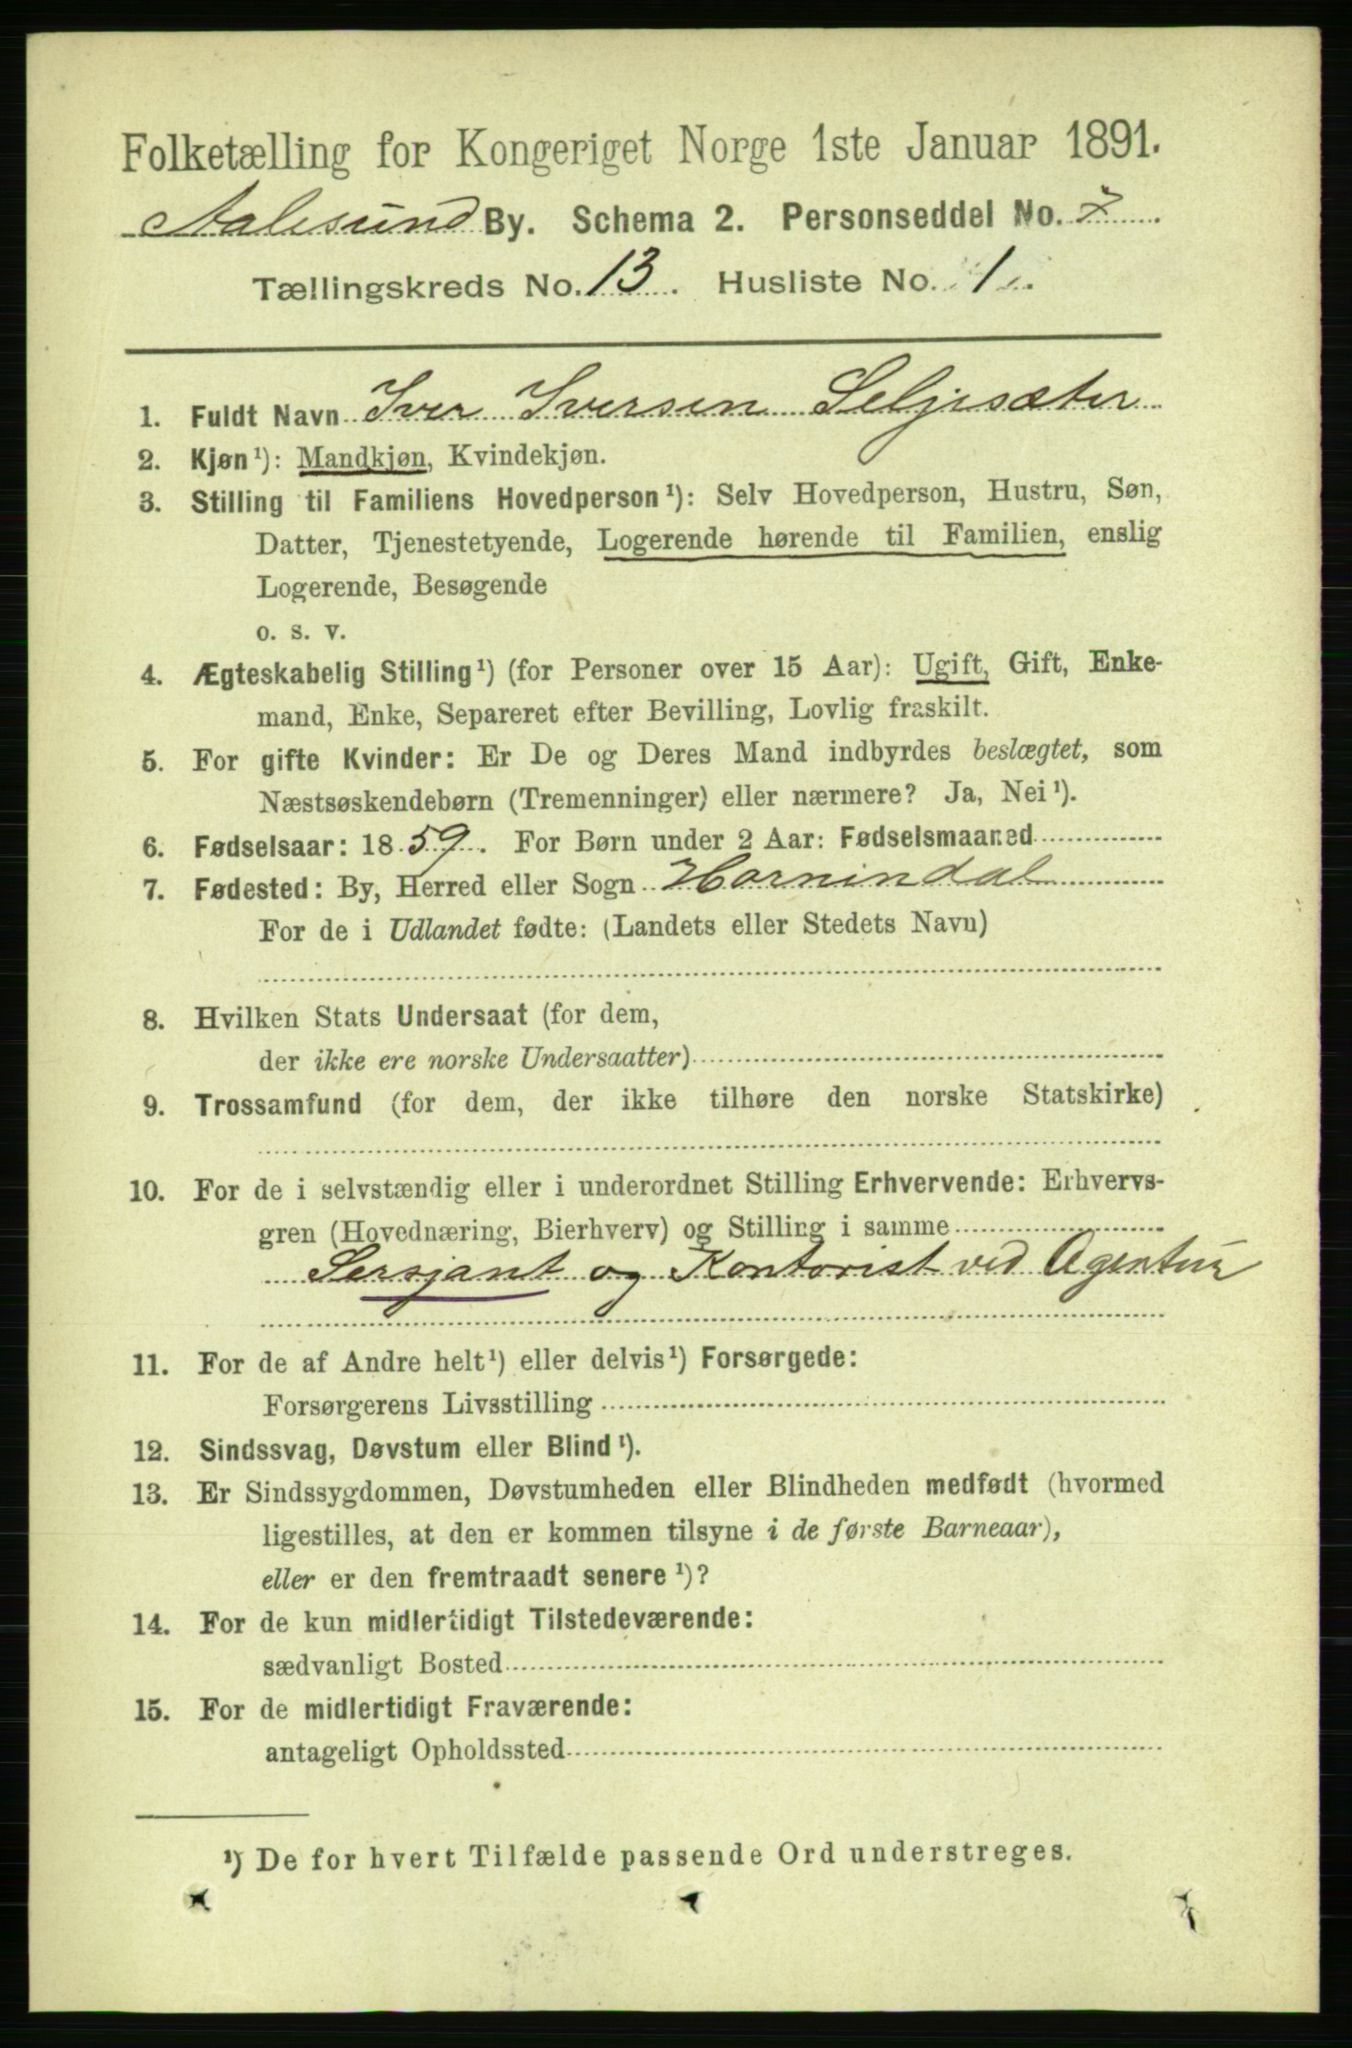 Folketælling for Kongeriget Norge 1ste Januar 1891.
Aalesund By. Schema 2. Personseddel No. 7.
Tællingskreds No. 13. Husliste No. 1.
1. Fuldt Navn Iver Iversen Seljesæter
2. Kjøn¹): Mandkjøn, Kvindekjøn.
3. Stilling til Familiens Hovedperson¹): Selv Hovedperson, Hustru, Søn,
Datter, Tjenestetyende, Logerende hørende til Familien, enslig
Logerende, Besøgende
o. s. v.
4. Ægteskabelig Stilling¹) (for Personer over 15 Aar): Ugift, Gift, Enke-
mand, Enke, Separeret efter Bevilling, Lovlig fraskilt.
5. For gifte Kvinder: Er De og Deres Mand indbyrdes beslægtet, som
Næstsøskendebørn (Tremenninger) eller nærmere? Ja, Nei¹).
6. Fødselsaar: 1859. For Børn under 2 Aar: Fødselsmaaned
7. Fødested: By, Herred eller Sogn Hornindal
For de i Udlandet fødte: (Landets eller Stedets Navn)
8. Hvilken Stats Undersaat (for dem,
der ikke ere norske Undersaatter)
9. Trossamfund (for dem, der ikke tilhøre den norske Statskirke)
10. For de i selvstændig eller i underordnet Stilling Erhvervende: Erhvervs-
gren (Hovednæring, Bierhverv) og Stilling i samme
Sersjant og Kontorist ved Agentur
11. For de af Andre helt¹) eller delvis¹) Forsørgede:
Forsørgerens Livsstilling
12. Sindssvag, Døvstum eller Blind¹).
13. Er Sindssygdommen, Døvstumheden eller Blindheden medfødt (hvormed
ligestilles, at den er kommen tilsyne i de første Barneaar),
eller er den fremtraadt senere¹)?
14. For de kun midlertidigt Tilstedeværende:
sædvanligt Bosted
15. For de midlertidigt Fraværende:
antageligt Opholdssted
¹) De for hvert Tilfælde passende Ord understreges.